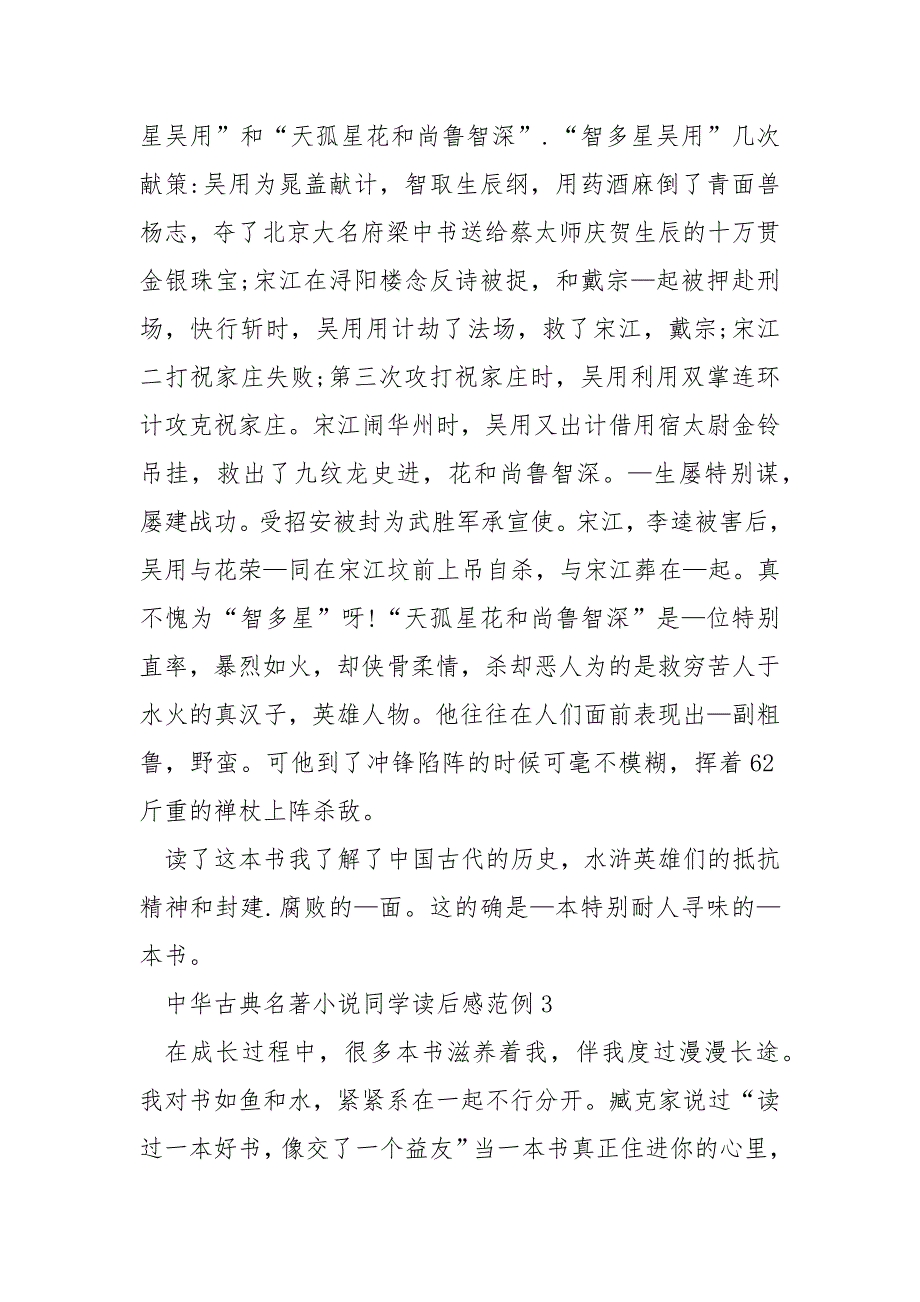 星吴用”和“天孤星花和尚鲁智深”.“智多星吴用”几次
献策:吴用为晁盖献计，智取生辰纲，用药酒麻倒了青面兽
杨志，夺了北京大名府梁中书送给蔡太师庆贺生辰的十万贯
金银珠宝;宋江在浔阳楼念反诗被捉，和戴宗—起被押赴刑
场，快行斩时，吴用用计劫了法场，救了宋江，戴宗;宋江
二打祝家庄失败;第三次攻打祝家庄时，吴用利用双掌连环
计攻克祝家庄。宋江闹华州时，吴用又出计借用宿太尉金铃
吊挂，救出了九纹龙史进，花和尚鲁智深。—生屡特别谋，
屡建战功。受招安被封为武胜军承宣使。宋江，李逵被害后，
吴用与花荣—同在宋江坟前上吊自杀，与宋江葬在—起。真
不愧为“智多星”呀!“天孤星花和尚鲁智深”是—位特别
直率，暴烈如火，却侠骨柔情，杀却恶人为的是救穷苦人于
水火的真汉子，英雄人物。他往往在人们面前表现出—副粗
鲁，野蛮。可他到了冲锋陷阵的时候可毫不模糊，挥着 62
斤重的禅杖上阵杀敌。
读了这本书我了解了中国古代的历史，水浒英雄们的抵抗
精神和封建.腐败的—面。这的确是—本特别耐人寻味的—
本书。
中华古典名著小说同学读后感范例 3
在成长过程中，很多本书滋养着我，伴我度过漫漫长途。
我对书如鱼和水，紧紧系在一起不行分开。臧克家说过“读
过一本好书，像交了一个益友”当一本书真正住进你的心里，